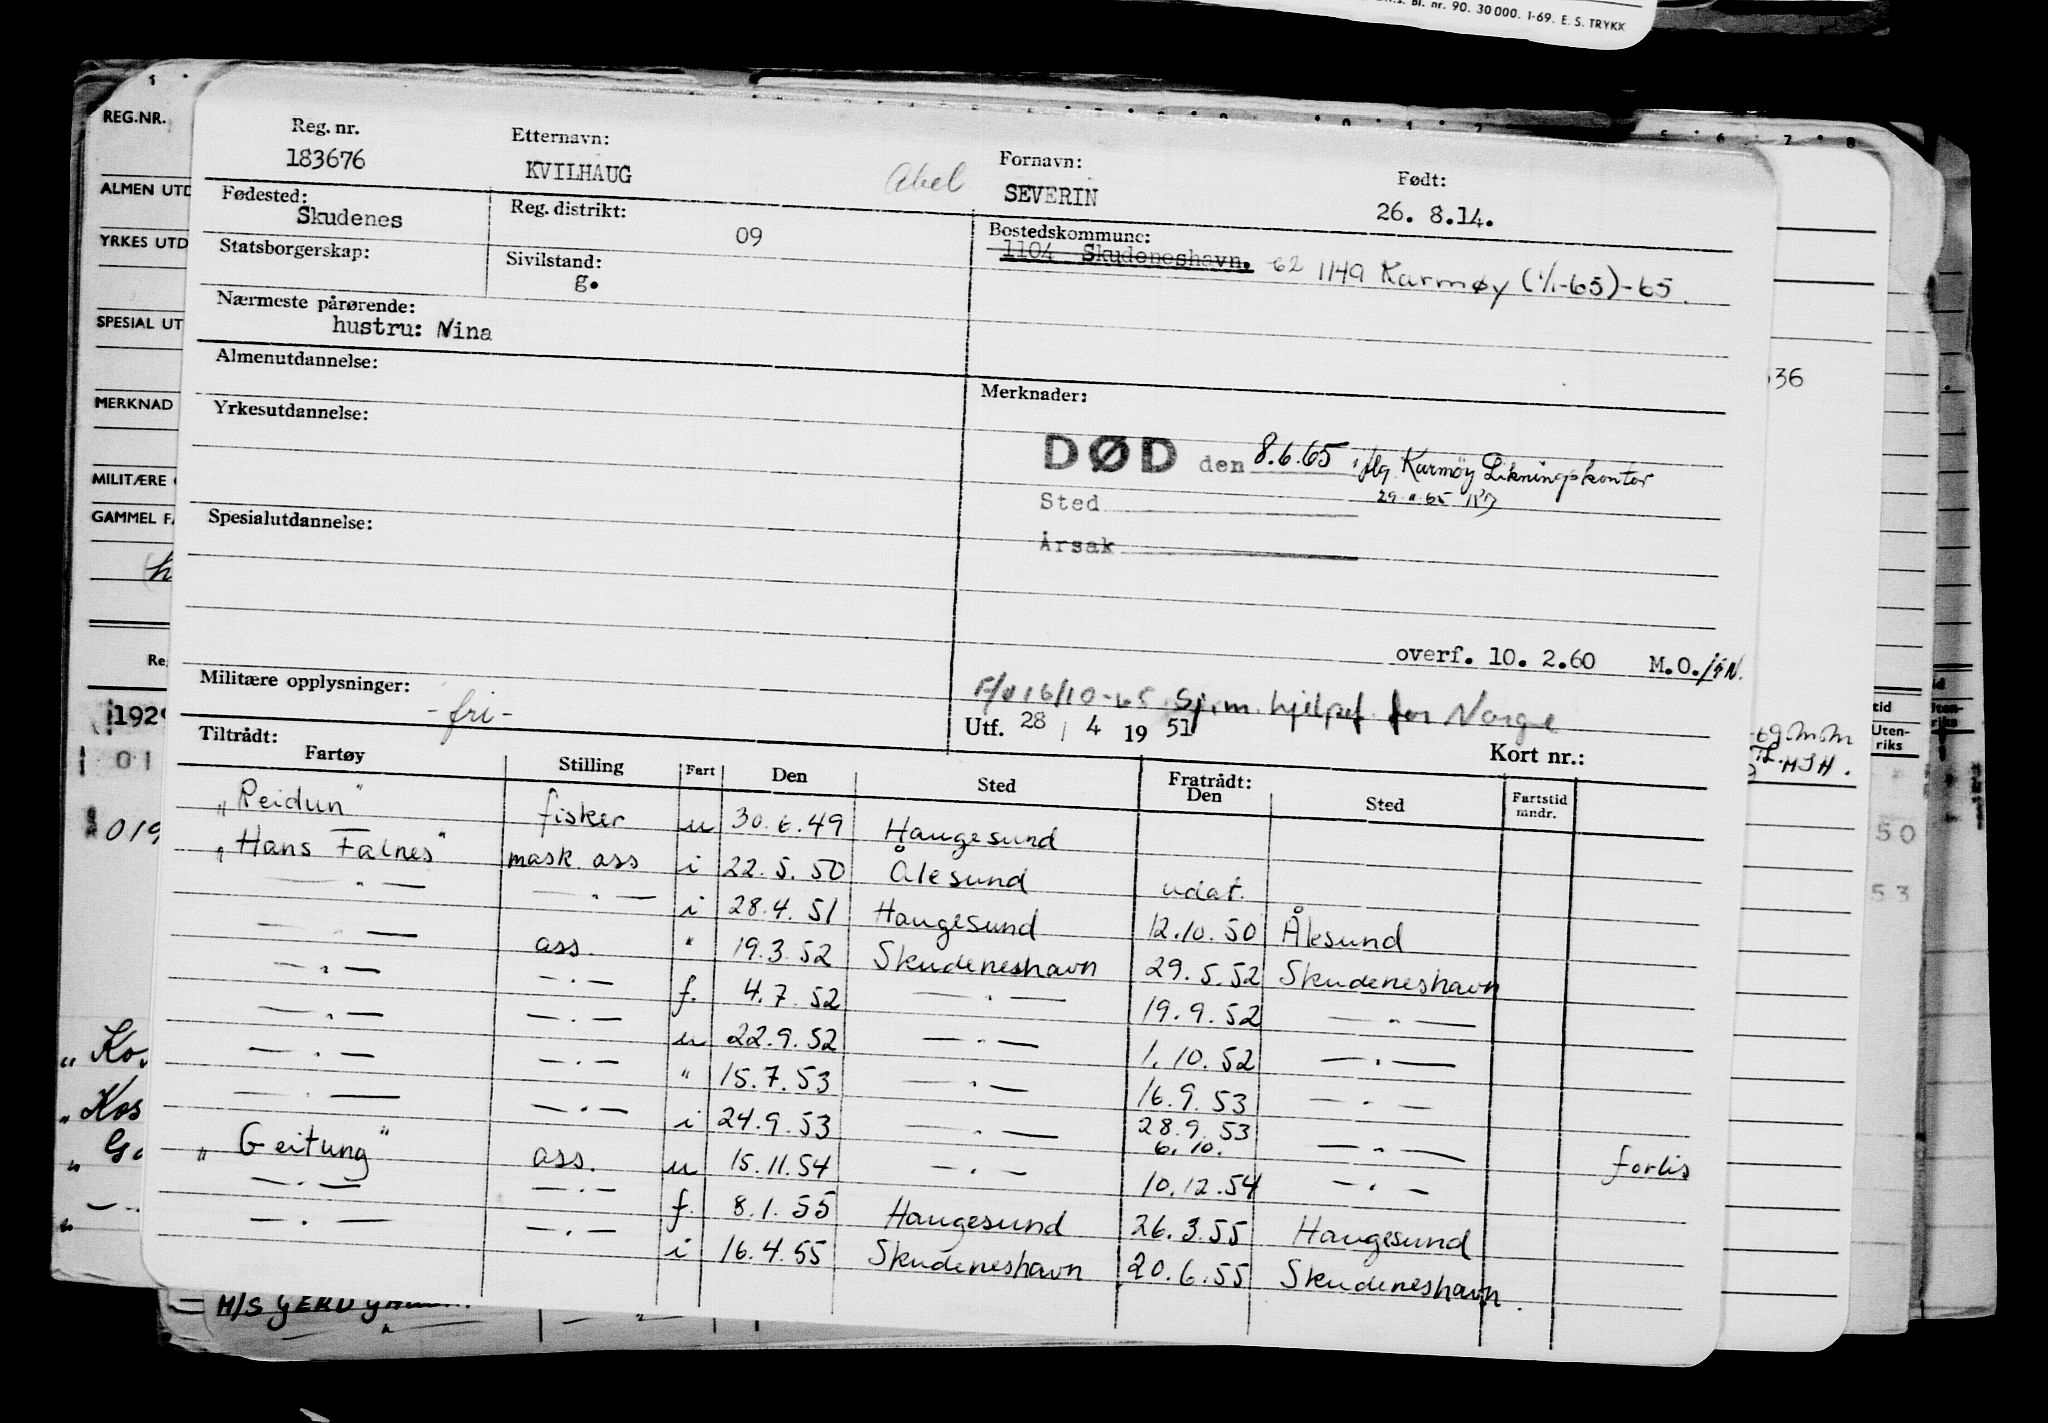 Bl. nr. 90. 30 000. 1-69. E. S. TRYKK
REG.NR.
ALMEN UTD
YRKES UTD
SPESIAL UT
MERKNAD
MILITÆRE
GAMMEL FA
Reg. nr. Etternavn: Fornavn: Født:
183676 KVILHAUG Abel SEVERIN 26. 8.14.
Fødested: Reg. distrikt: Bostedskommune:
Skudenes 09 1104 Skudeneshavn. 62 1149 Karmøy (1/1-65)-65.
Statsborgerskap: Sivilstand:
g.
Nærmeste pårørende:
hustru: Nina
Almenutdannelse:
Yrkesutdannelse:
Merknader:
DØD den 8.6.65 iflg. Karmøy Likningskontor
Sted
Årsak
Spesialutdannelse:
overf. 10. 2.60 M.O.
Militære opplysninger:
-fri-
16/10-65 Sj.m. hjelpef. for Norge
Utf. 28 / 4 19 51
Kort nr.:
Tiltrådt: Fratrådt:
Fartøy Stilling Fart Den Sted Den Sted Fartstid mndr.
"Reidun" fisker u 30.6.49 Haugesund
"Hans Falnes" mask ass i 22.5.50 Ålesund udat.
— " — — " — i 28.4.51 Haugesund 12.10.50 Ålesund
— " — ass. " 19.3.52 Skudeneshavn 29.5.52 Skudeneshavn
— " — — " — f. 4.7.52 — " — 19.9.52 — " —
— " — — " — u 22.9.52 — " — 1.10.52 — " —
— " — — " — " 15.7.53 — " — 16.9.53 — " —
— " — — " — i 24.9.53 — " — 28.9.53 — " —
6.10.
"Geitung" ass. u 15.11.54 — " — 10.12.54 — " — forlis
— " — — " — f. 8.1.55 Haugesund 26.3.55 Haugesund
— " — — " — i 16.4.55 Skudeneshavn 20.6.55 Skudeneshavn.
36
tid
Uten-
riks
50
53
1929
01
019
"Ko
"Kos
M/S GERD